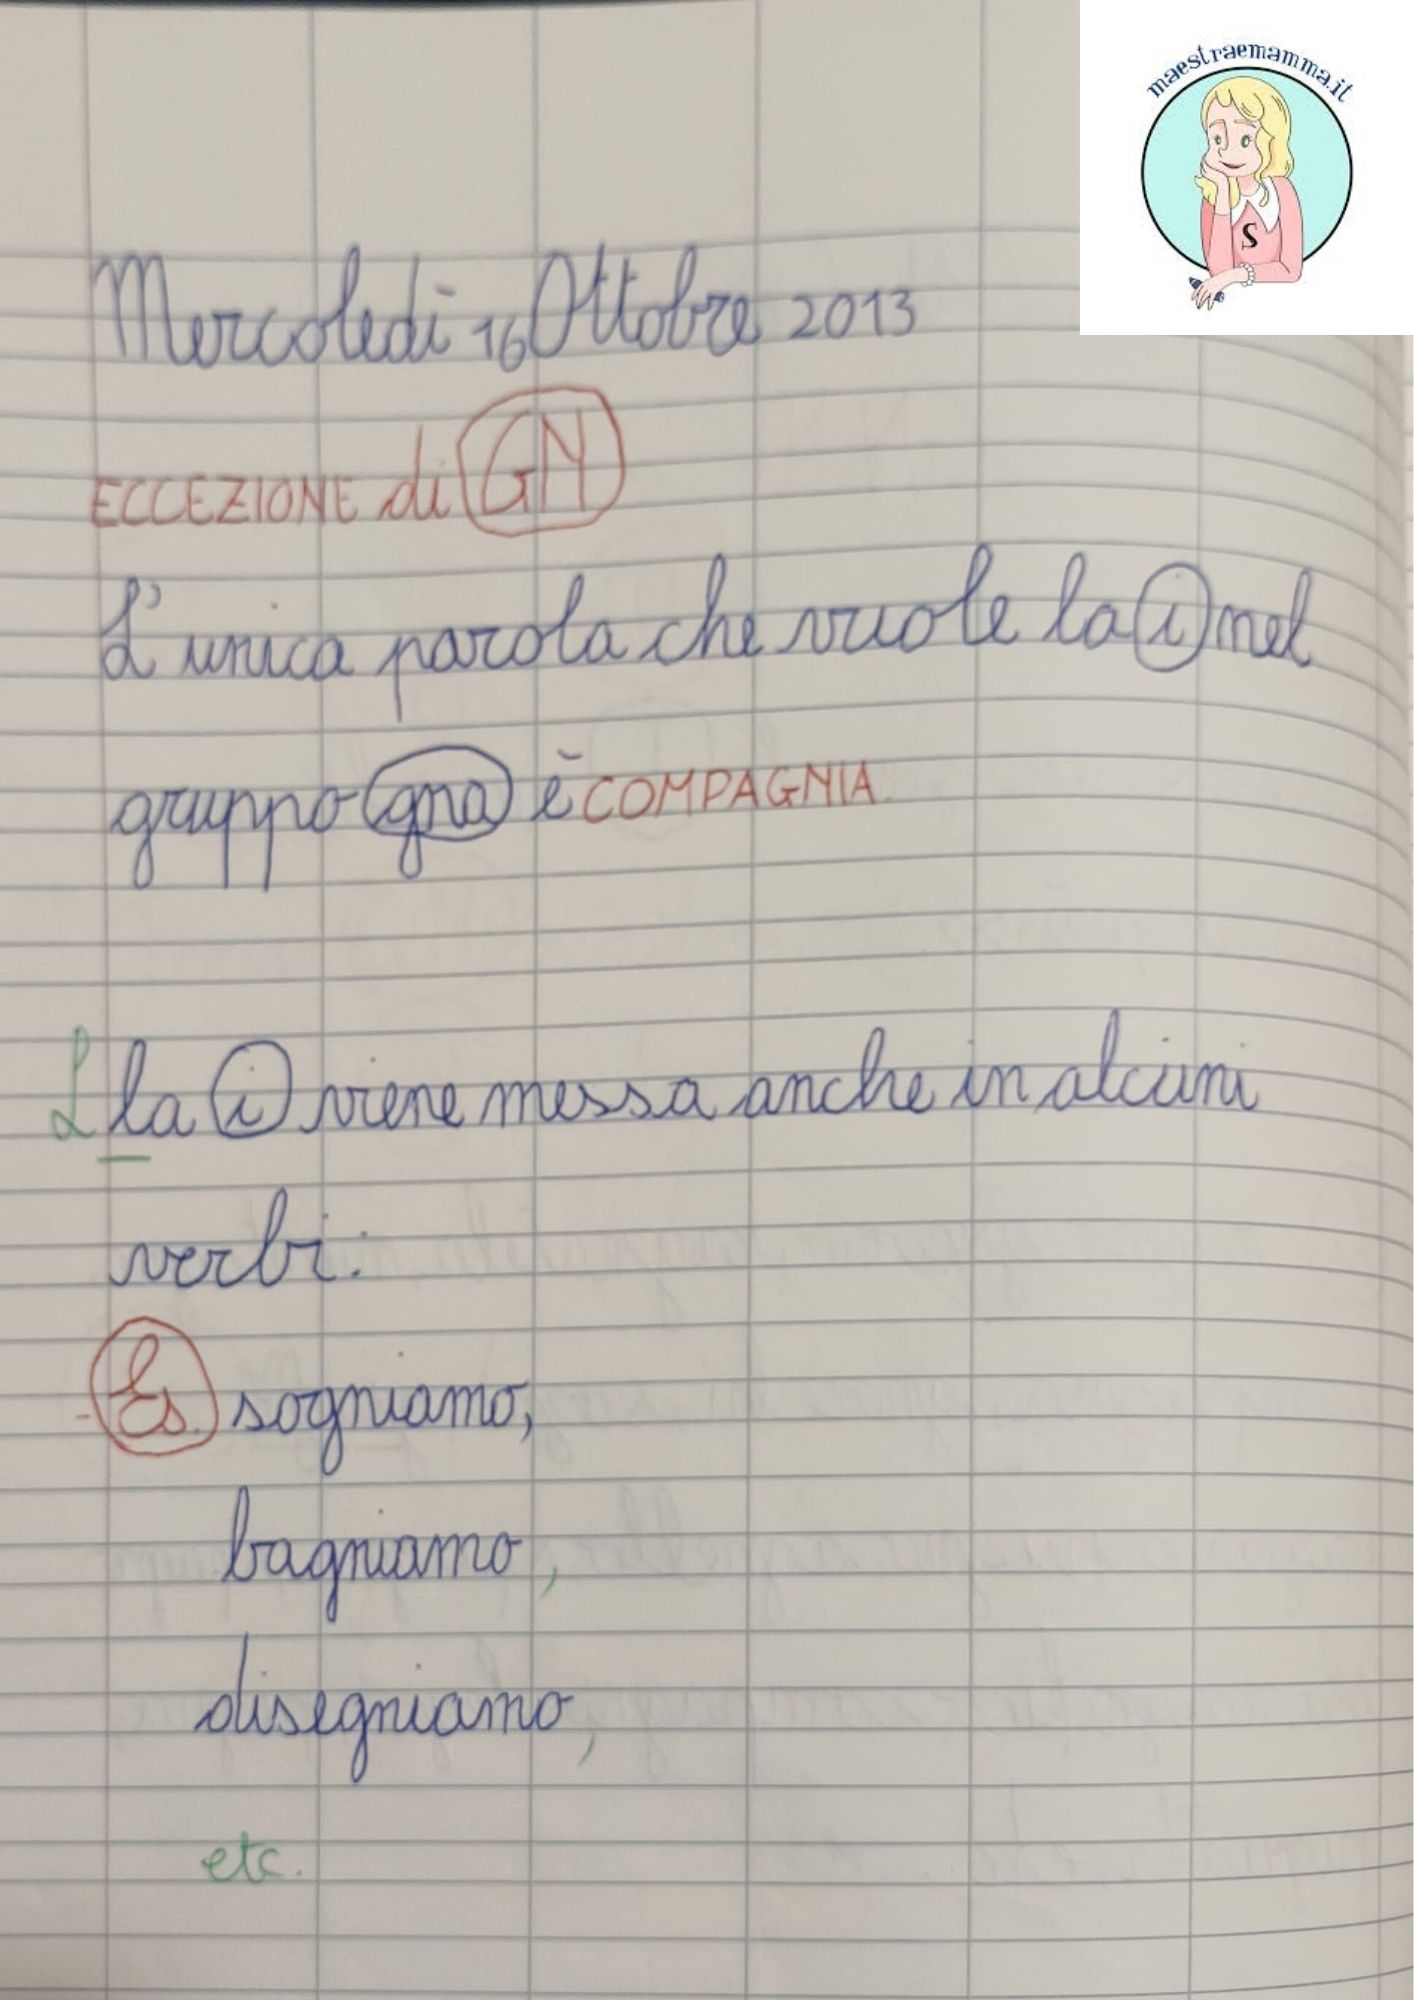 maestraemamma.it
S
Mercoledì 16 Ottobre 2013
ECCEZIONE di GN
L'unica parola che vuole la i nel
gruppo gna è COMPAGNIA
L la i viene messa anche in alcuni
verbi:
Es. sogniamo,
bagniamo,
disegniamo,
etc.